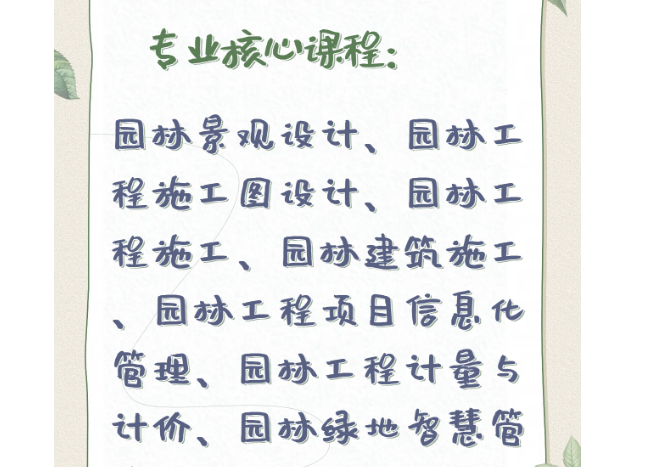 专业核心课程：
园林景观设计、园林工
程施工图设计、园林工
程施工、园林建筑施工
、园林工程项目信息化
管理、园林工程计量与
计价、园林绿地智慧管